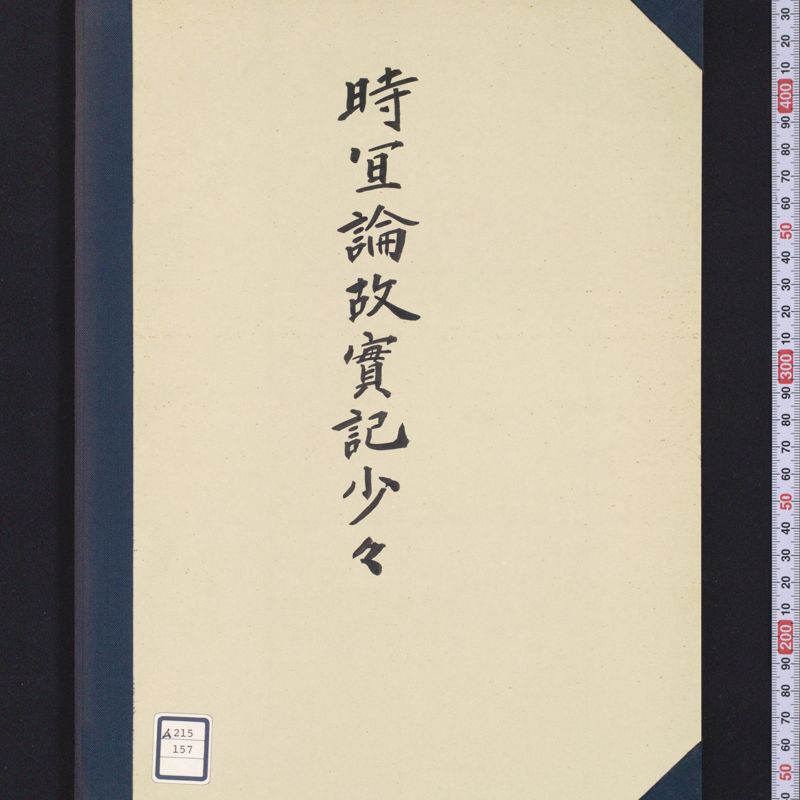 時宜論故實記少々
A215
157
30
20
10
400
90
80
70
60
50
40
30
20
10
300
90
80
70
60
50
40
30
20
10
200
90
80
70
60
50
40